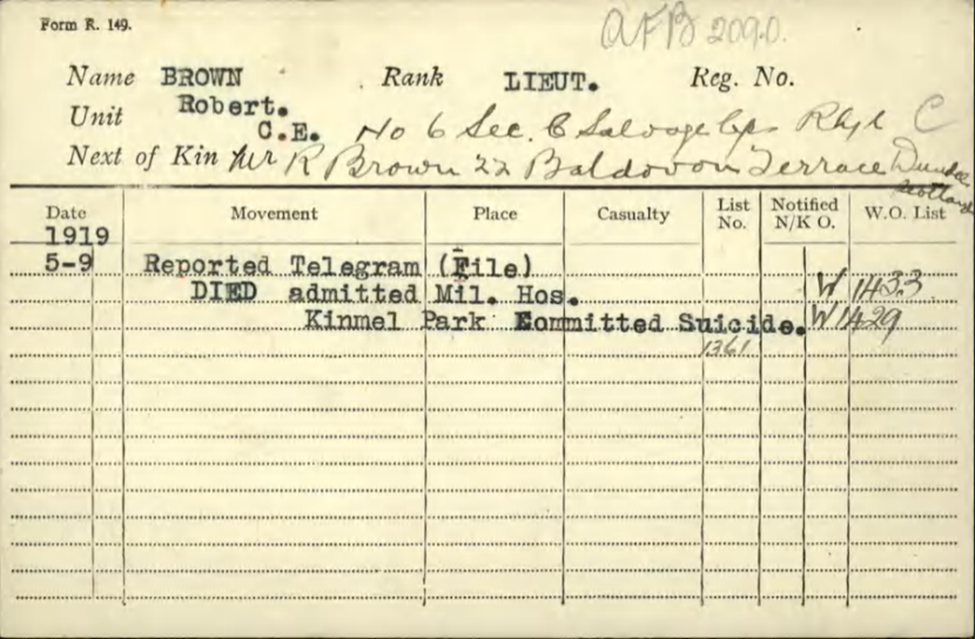 Form R. 149.
AFB 2090.
Name BROWN Rank LIEUT. Reg. No.
Robert.
Unit C.E. No 6 Sec. C Salvage Cps Rhyl C
Next of Kin Mr R Brown 22 Baldovan Terrace Dundee
Scotland
Date Movement Place Casualty List No. Notified N/K O. W.O. List
1919
5-9 Reported Telegram (File)
DIED admitted Mil. Hos. W 1433
Kinmel Park Committed Suicide. W1429
1361